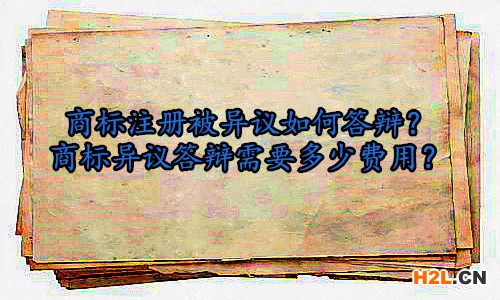 商标注册被异议如何答辩？
商标异议答辩需要多少费用？
H2L.CN